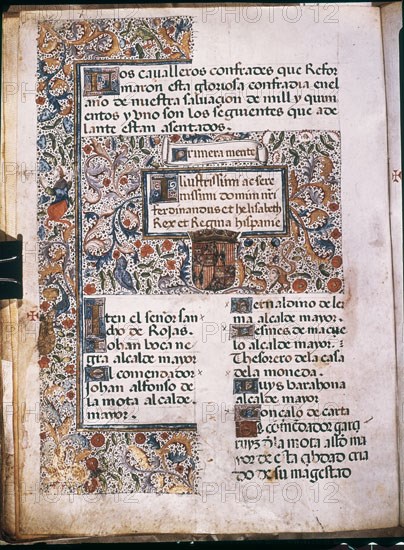 Los caualleros confrades que Refor
maron esta gloriosa confradia enel
año de nuestra saluacion de mill y quini
entos y vno son los seguientes que a de
lante estan asentados.
Primera mente
Illustrissimi ac sere
nissimi domini nri
ferdinandus et helisabeth
Rex et Regina hispanie
Iten el señor san
cho de Rojas.
Johan boca ne
gra alcalde mayor
El comendador
Johan alfonso de
la mota alcalde
mayor.
Bernaldino de ler
ma alcalde mayor
Jesnes de maçue
lo alcalde mayor.
Thesorero dela casa
de la moneda.
Ruys barahona
alcalde mayor
Gonçalo de carta
El comendador garçi
ruyz dla mota alld ma
yor de esta çibdad cria
do de su magestad
PHOTO12